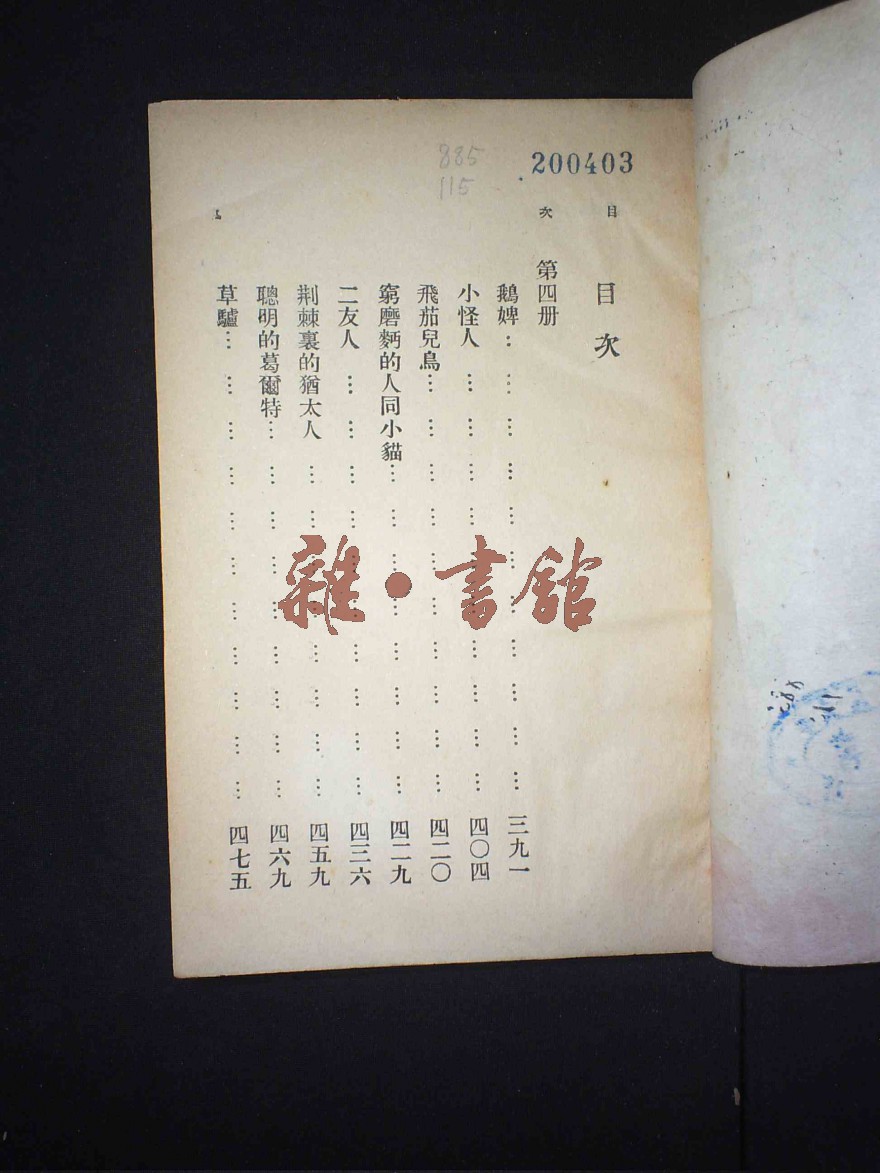 885
115
200403
目次
目次
第四册
鵝婢 … … … … … … … … … … … 三九一
小怪人 … … … … … … … … … … 四〇四
飛茄兒鳥 … … … … … … … … … … 四二〇
窮磨麪的人同小貓 … … … … … … … … 四二九
二友人 … … … … … … … … … … 四三六
荆棘裏的猶太人 … … … … … … … … 四五九
聰明的葛爾特 … … … … … … … … … 四六九
草驢 … … … … … … … … … … … 四七五
雜·書館